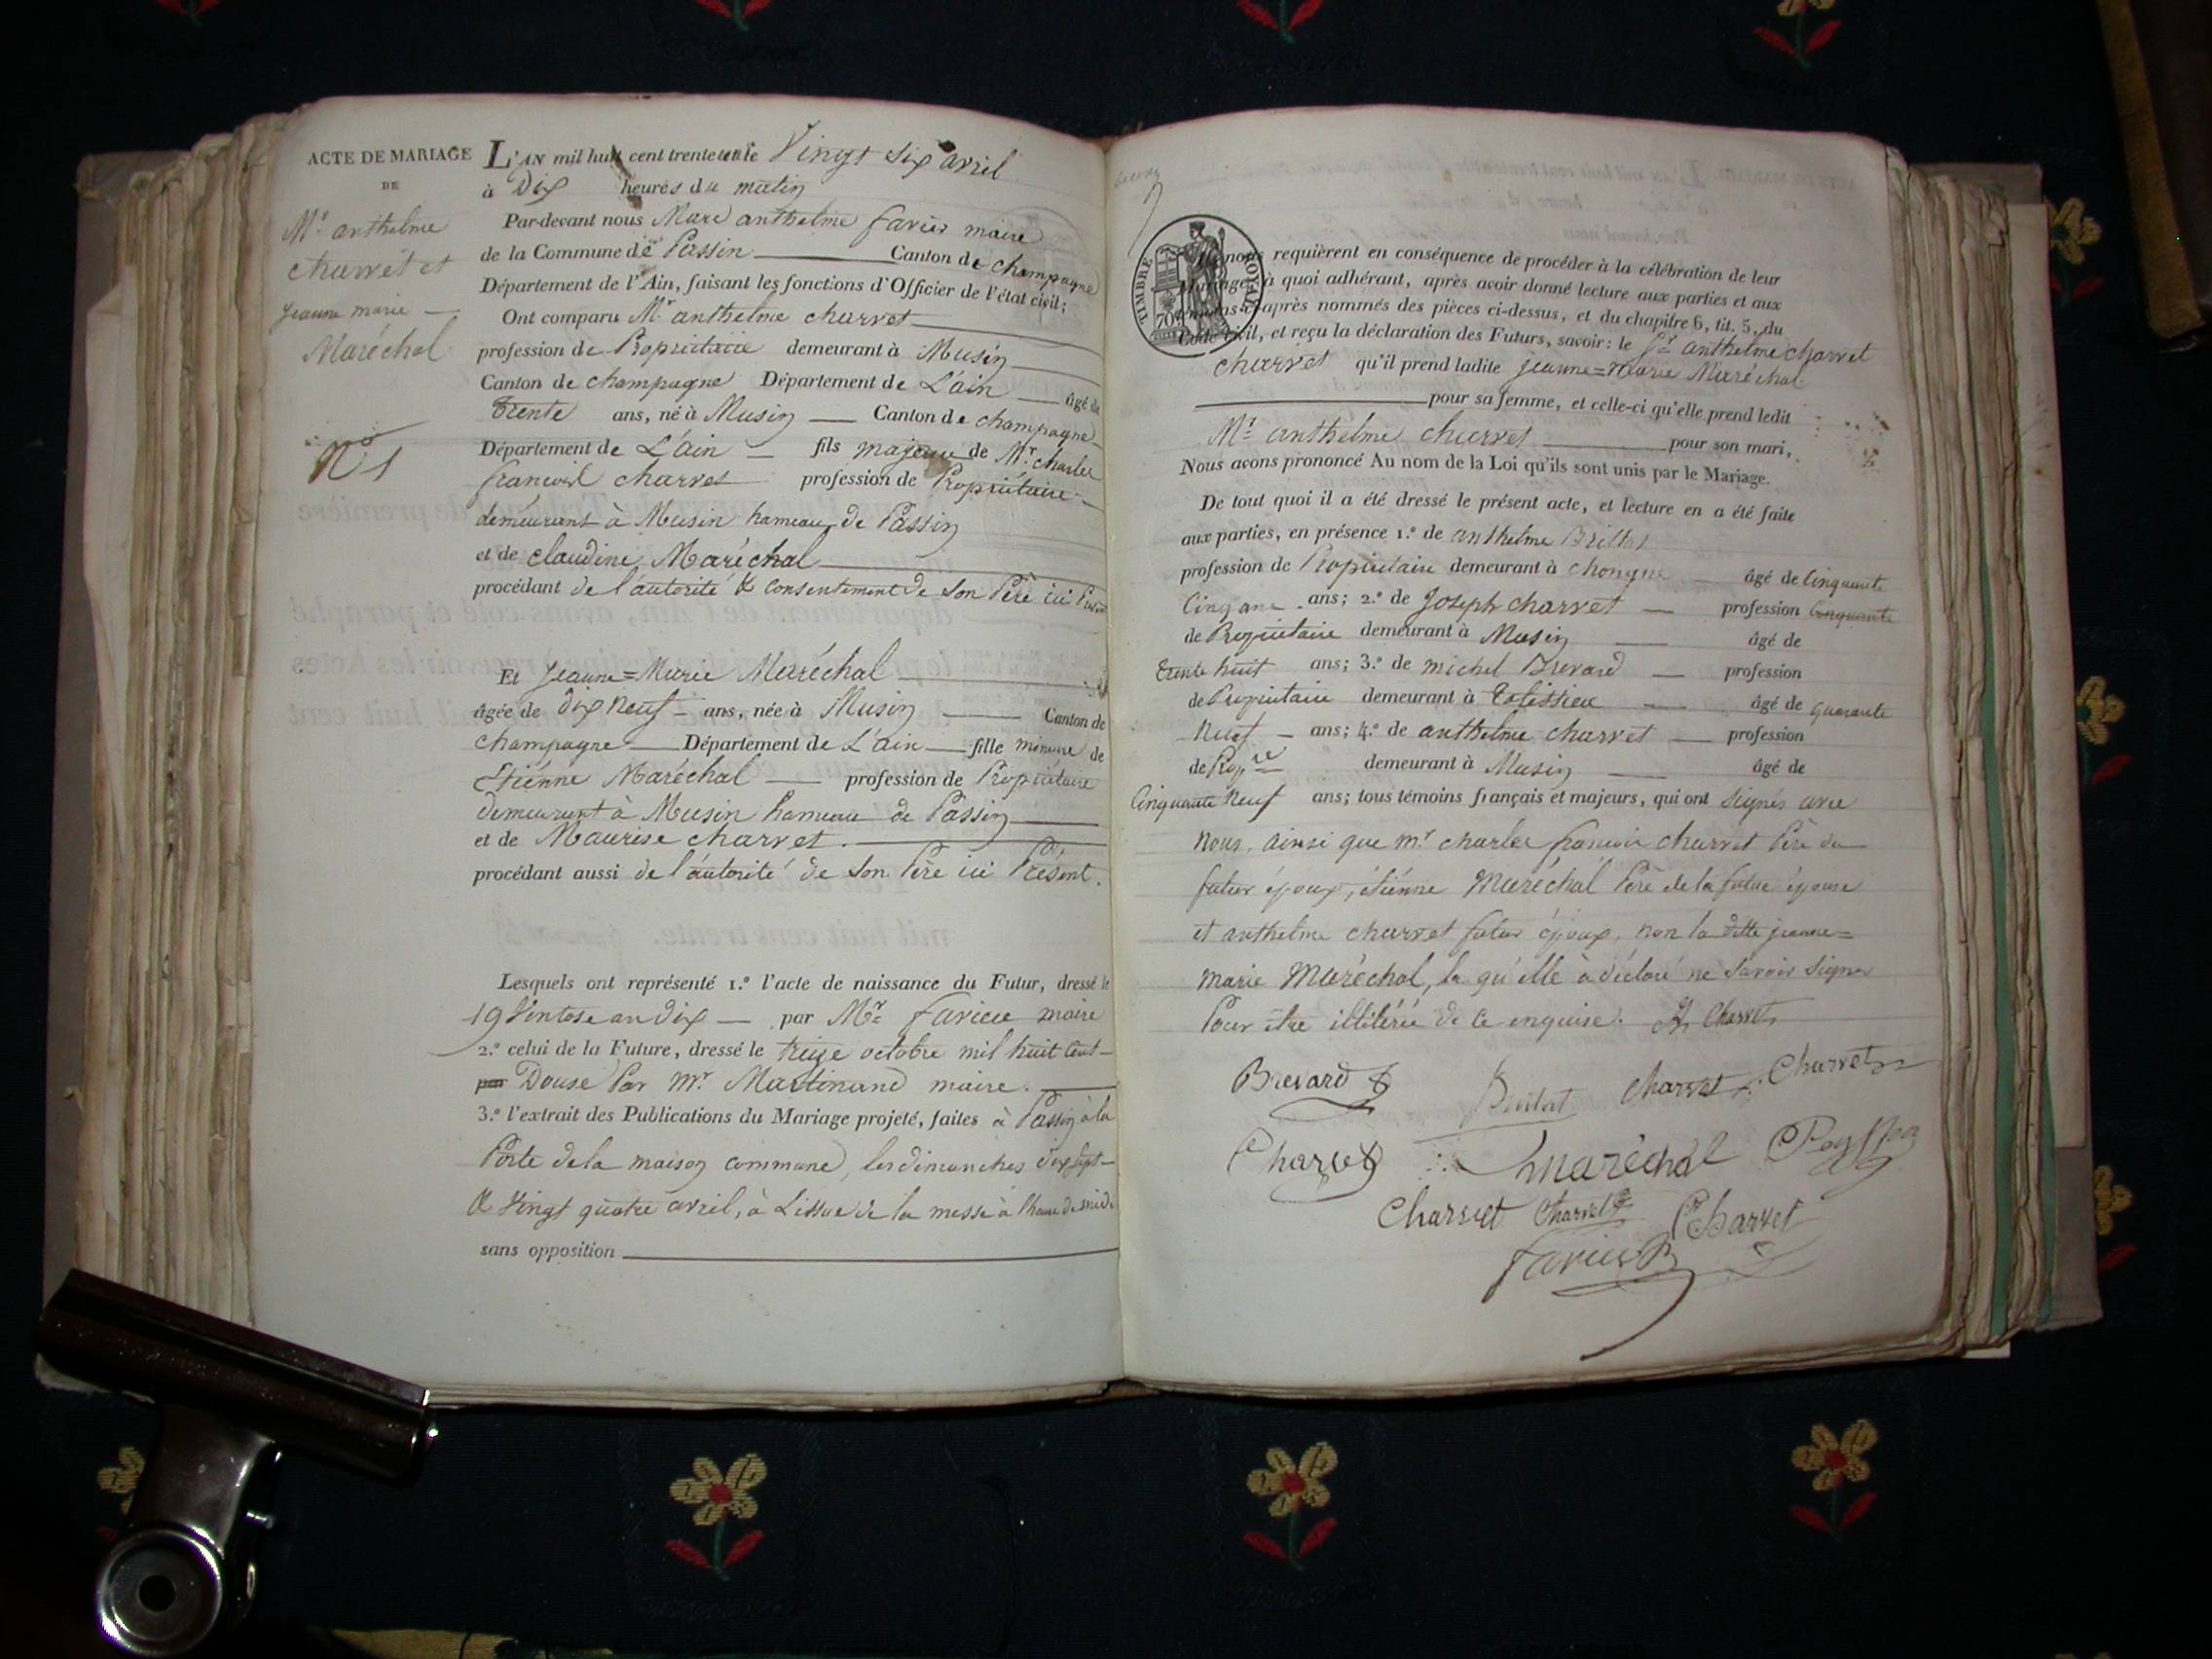 ACTE DE MARIAGE
DE
Mr. anthelme
charvet et
jeanne marie —
Maréchal
N° 1
L'AN mil huit cent trente un le Vingt six avril
à Dix heures du matin
Par-devant nous Marc anthelme favier maire
de la Commune de Passin Canton de champagne
Département de l'Ain, faisant les fonctions d'Officier de l'état civil;
Ont comparu Mr. anthelme charvet
profession de Propriétaire demeurant à Musin
Canton de champagne Département de L'ain âgé de
trente ans, né à Musin — Canton de champagne
Département de L'ain — fils majeur de Mr. charles
françois charvet profession de Propriétaire
demeurant à Musin hameau de Passin
et de claudine Maréchal
procédant de l'autorité & consentement de son Père ici Présent
Et jeanne=Marie Maréchal
âgée de dix neuf — ans, née à Musin — Canton de
champagne — Département de L'ain — fille mineure de
Etiénne Maréchal — profession de Propriétaire
demeurant à Musin hameau de Passin
et de Maurise charvet.
procédant aussi de l'autorité de son Père ici Présent.
Lesquels ont représenté 1.º l'acte de naissance du Futur, dressé le
19 Ventose an dix — par Mr. favier maire
2.º celui de la Future, dressé le treize octobre mil huit cent
par Douse Par mr. Martinand maire.
3.º l'extrait des Publications du Mariage projeté, faites à Passin à la
Porte de la maison commune, les dimanches dix sept
& Vingt quatre avril, à L'issue de la messe à l'heure de midi
sans opposition
TIMBRE ROYAL
70
nous requièrent en conséquence de procéder à la célébration de leur
Mariage, à quoi adhérant, après avoir donné lecture aux parties et aux
témoins ci-après nommés des pièces ci-dessus, et du chapitre 6, tit. 5, du
Code civil, et reçu la déclaration des Futurs, savoir: le Sr. anthelme charvet
charvet qu'il prend ladite jeanne=marie Maréchal
pour sa femme, et celle-ci qu'elle prend ledit
Mr. anthelme charvet pour son mari,
Nous avons prononcé Au nom de la Loi qu'ils sont unis par le Mariage.
De tout quoi il a été dressé le présent acte, et lecture en a été faite
aux parties, en présence 1.º de anthelme
profession de Propriétaire demeurant à âgé de Cinquante
Cinq ans; 2.º de Joseph charvet — profession Cinquante
de Propriétaire demeurant à Musin — âgé de
trente huit ans; 3.º de michel Brevard — profession
de Propriétaire demeurant à — âgé de quarante
Neuf — ans; 4.º de anthelme charvet — profession
de Propre demeurant à Musin — âgé de
Cinquante Neuf ans; tous témoins français et majeurs, qui ont signés avec
Nous, ainsi que mr. charles françois charvet Père du
futur époux, étiénne Maréchal Père de la future épouse
et anthelme charvet futur époux, non la ditte jeanne=
marie Maréchal, la qu'elle à déclaré ne savoir signer
Pour être illitérée de ce enquise. Charvet
Brevard charvet Charvet
Charvet maréchal
Charvet Charvet Charvet
favier